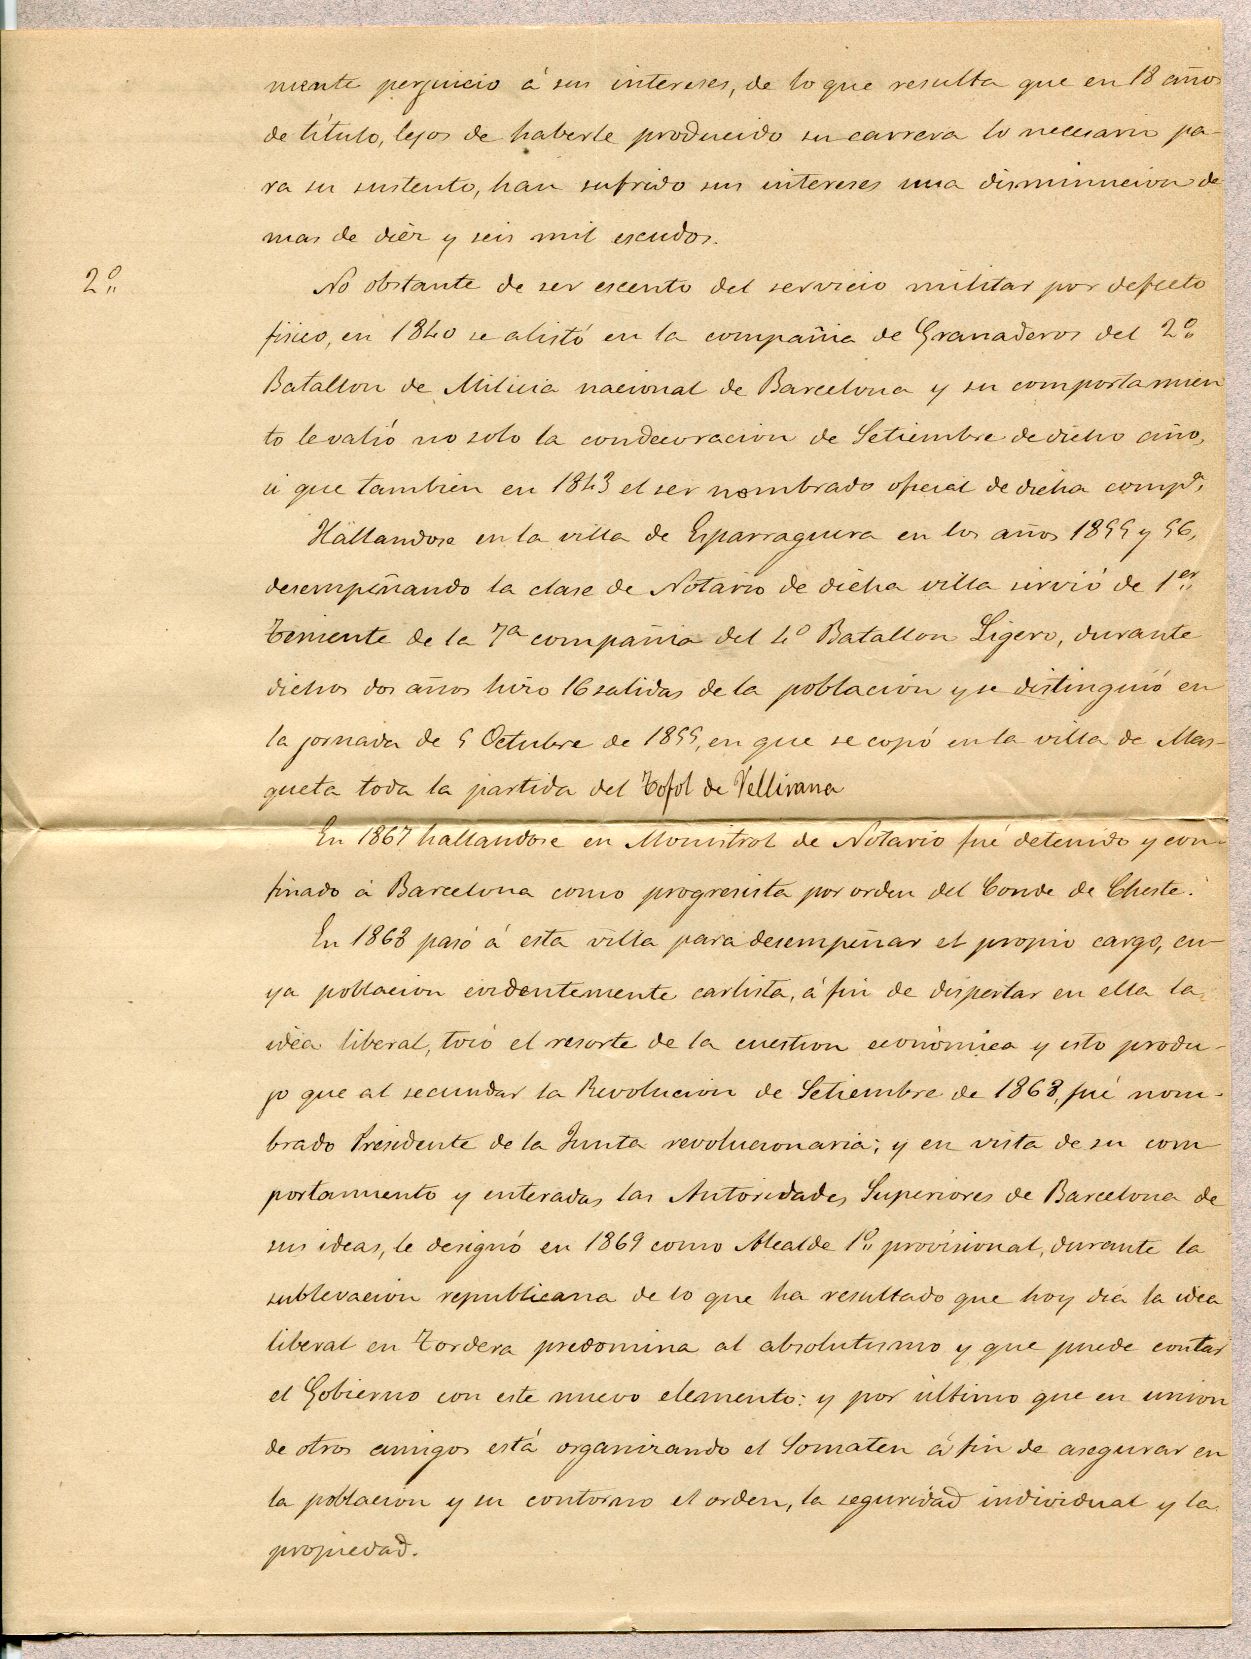 mente perjuicio á sus intereses, de lo que resulta que en 18 años
de título, lejos de haberle producido su carrera lo necesario pa-
ra su sustento, han sufrido sus intereses una disminucion de
mas de diéz y seis mil escudos.
2º
No obstante de ser escento del servicio militar por defecto
fisico, en 1840 se alistó en la compañia de Granaderos del 2º
Batallon de Milicia nacional de Barcelona y su comportamien
to le valió no solo la condecoracion de Setiembre de dicho año,
si que tambien en 1843 el ser nombrado oficial de dicha compª.
Hallandose en la villa de Esparraguera en los años 1855 y 56,
desempeñando la clase de Notario de dicha villa sirvió de 1er
Teniente de la 7ª compañia del 4º Batallon Ligero, durante
dichos dos años hizo 16 salidas de la poblacion y se distinguió en
la jornada de 5 Octubre de 1855, en que se copó en la villa de Mas-
queta toda la partida del Tofol de Vallirana
En 1867 hallandose en Monistrol de Notario fué detenido y con-
finado á Barcelona como progresista por orden del Conde de Cheste.
En 1868 pasó á esta villa para desempeñar el propio cargo, cu-
ya poblacion evidentemente carlista, á fin de dispertar en ella la
idéa liberal, tocó el resorte de la cuestion económica y esto produ-
jo que al secundar la Revolucion de Setiembre de 1868, fué nom-
brado Presidente de la Junta revolucionaria; y en vista de su com
portamiento y enteradas las Autoridades Superiores de Barcelona de
sus ideas, le designó en 1869 como Alcalde 1º provisional, durante la
sublevacion republicana de lo que ha resultado que hoy dia la idea
liberal en Tordera predomina al absolutismo y que puede contar
el Gobierno con este nuevo elemento: y por último que en union
de otros amigos está organizando el Somaten á fin de asegurar en
la poblacion y su contorno el orden, la seguridad individual y la
propiedad.